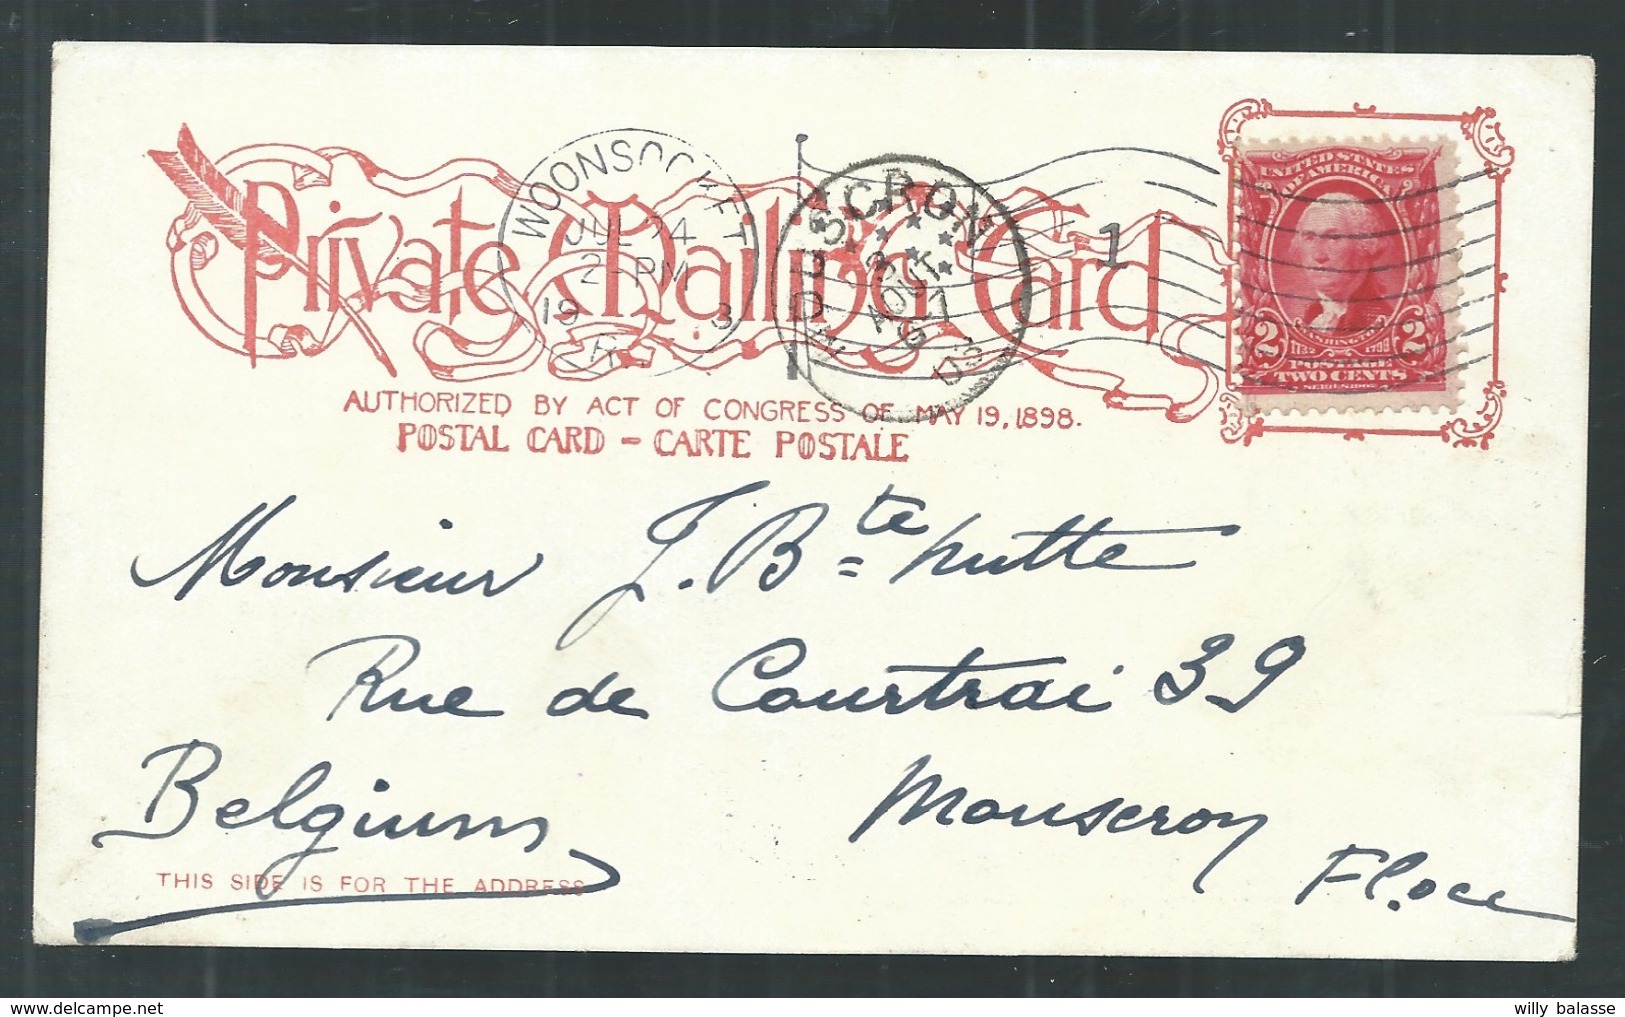 Private Mailing Card
AUTHORIZED BY ACT OF CONGRESS OF MAY 19, 1898.
POSTAL CARD – CARTE POSTALE
WOONSOCKET
JUL 24
2-PM
19 3
R.I.
MOUSCRON
3
AOUT
1
UNITED STATES
OF AMERICA
2 2
WASHINGTON
1732 1799
POSTAGE
TWO CENTS
SERIES 1902
Monsieur J. Bte hutte
Rue de Courtrai 39
Belgium Mouscron
Fl. occ
THIS SIDE IS FOR THE ADDRESS
willy balasse